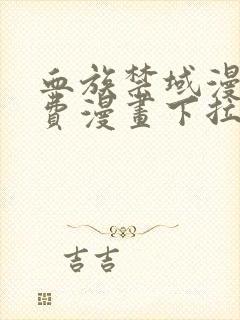 血族禁域漫
費漫畫下拉
吉吉